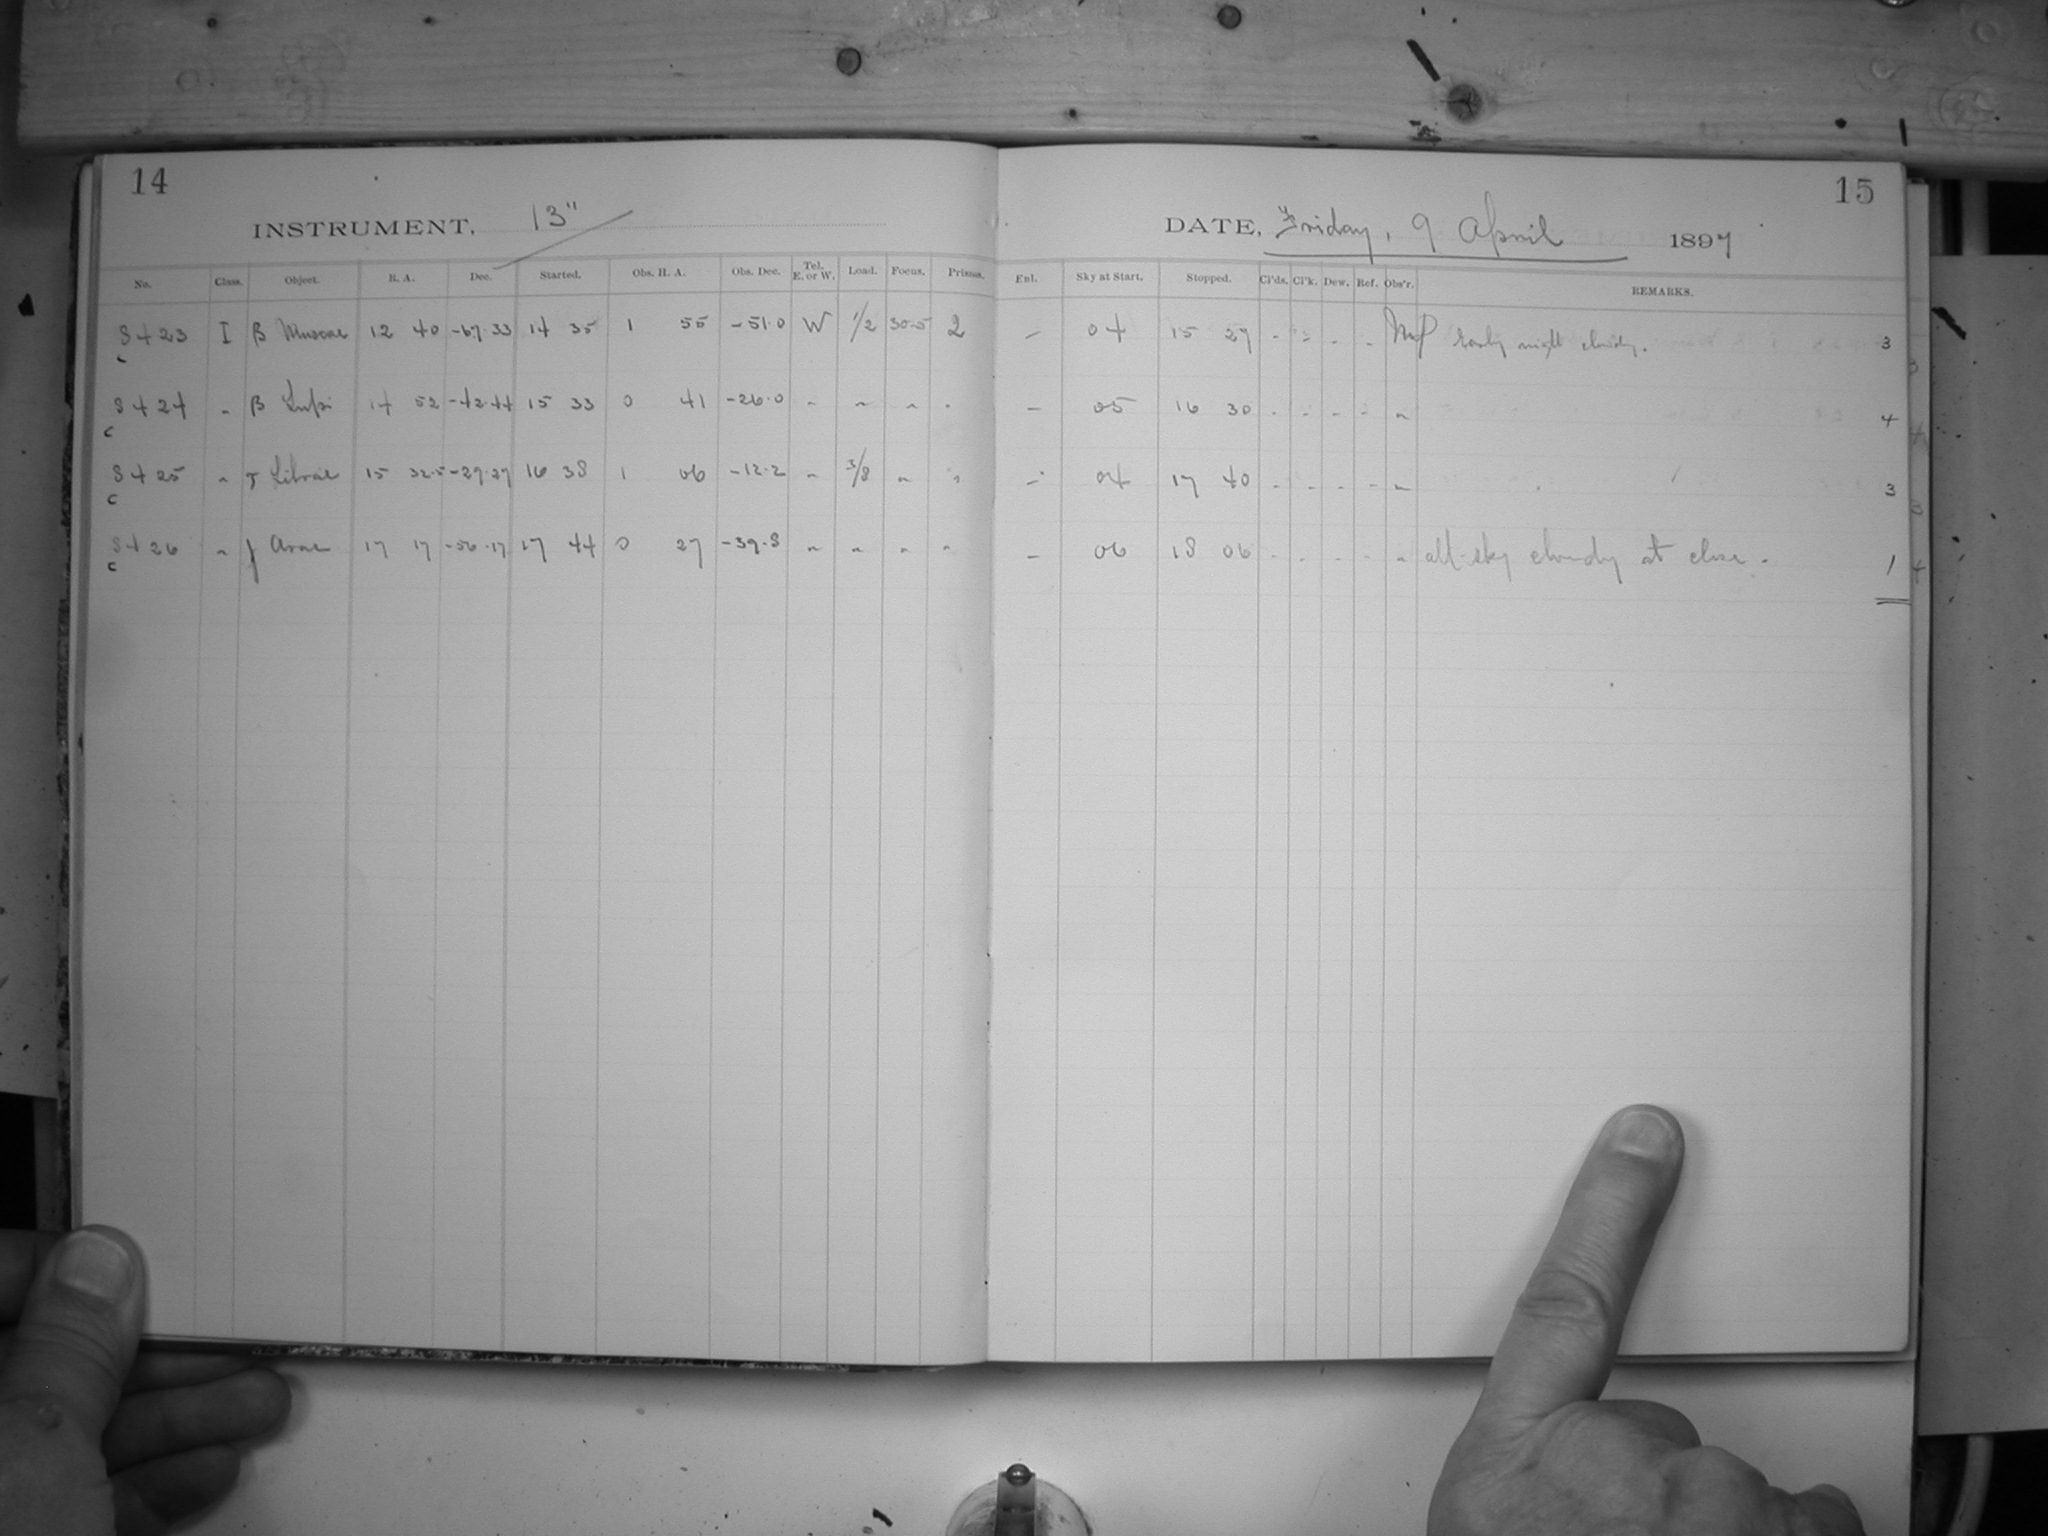 14
INSTRUMENT, 13"
No. Class. Object. R. A. Dec. Started. Obs. H. A. Obs. Dec. Tel. E. or W. Load. Focus. Prisms.
8423 I β Muscae 12 40 -67.33 14 35 1 55 -51.0 W 1/2 30.5 2
c
8424 " β Lupi 14 52 -42.44 15 33 0 41 -26.0 " " " "
c
8425 " τ Librae 15 32.5 -29.27 16 38 1 06 -12.2 " 3/8 " "
c
8426 " f Arae 17 17 -56.17 17 44 0 27 -39.8 " " " "
c
15
DATE, Friday, 9 April 1897
Enl. Sky at Start. Stopped. Cl'ds. Cl'k. Dew. Ref. Obs'r. REMARKS.
- 04 15 27 - - - - Early night cloudy. 3
- 05 16 30 - - - - " 4
- 04 17 40 - - - - " 3
- 06 18 06 - - - - " all sky cloudy at close. 1